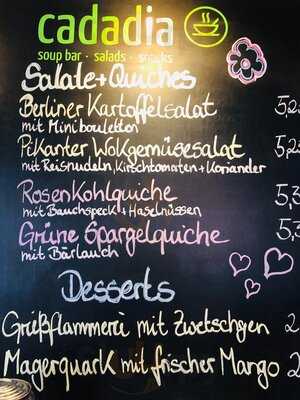 cadadia
soup bar · salads · snacks
Salate + Quiches
Berliner Kartoffelsalat 5,2
mit Mini bouletten
Pikanter Wokgemüsesalat 5,2
mit Reisnudeln, Kirschtomaten + Koriander
Rosenkohlquiche 5,
mit Bauchspeck + Haselnüssen
Grüne Spargelquiche 5,
mit Bärlauch
Desserts
Grießflammerie mit Zwetschgen 2
Magerquark mit frischer Mango 2